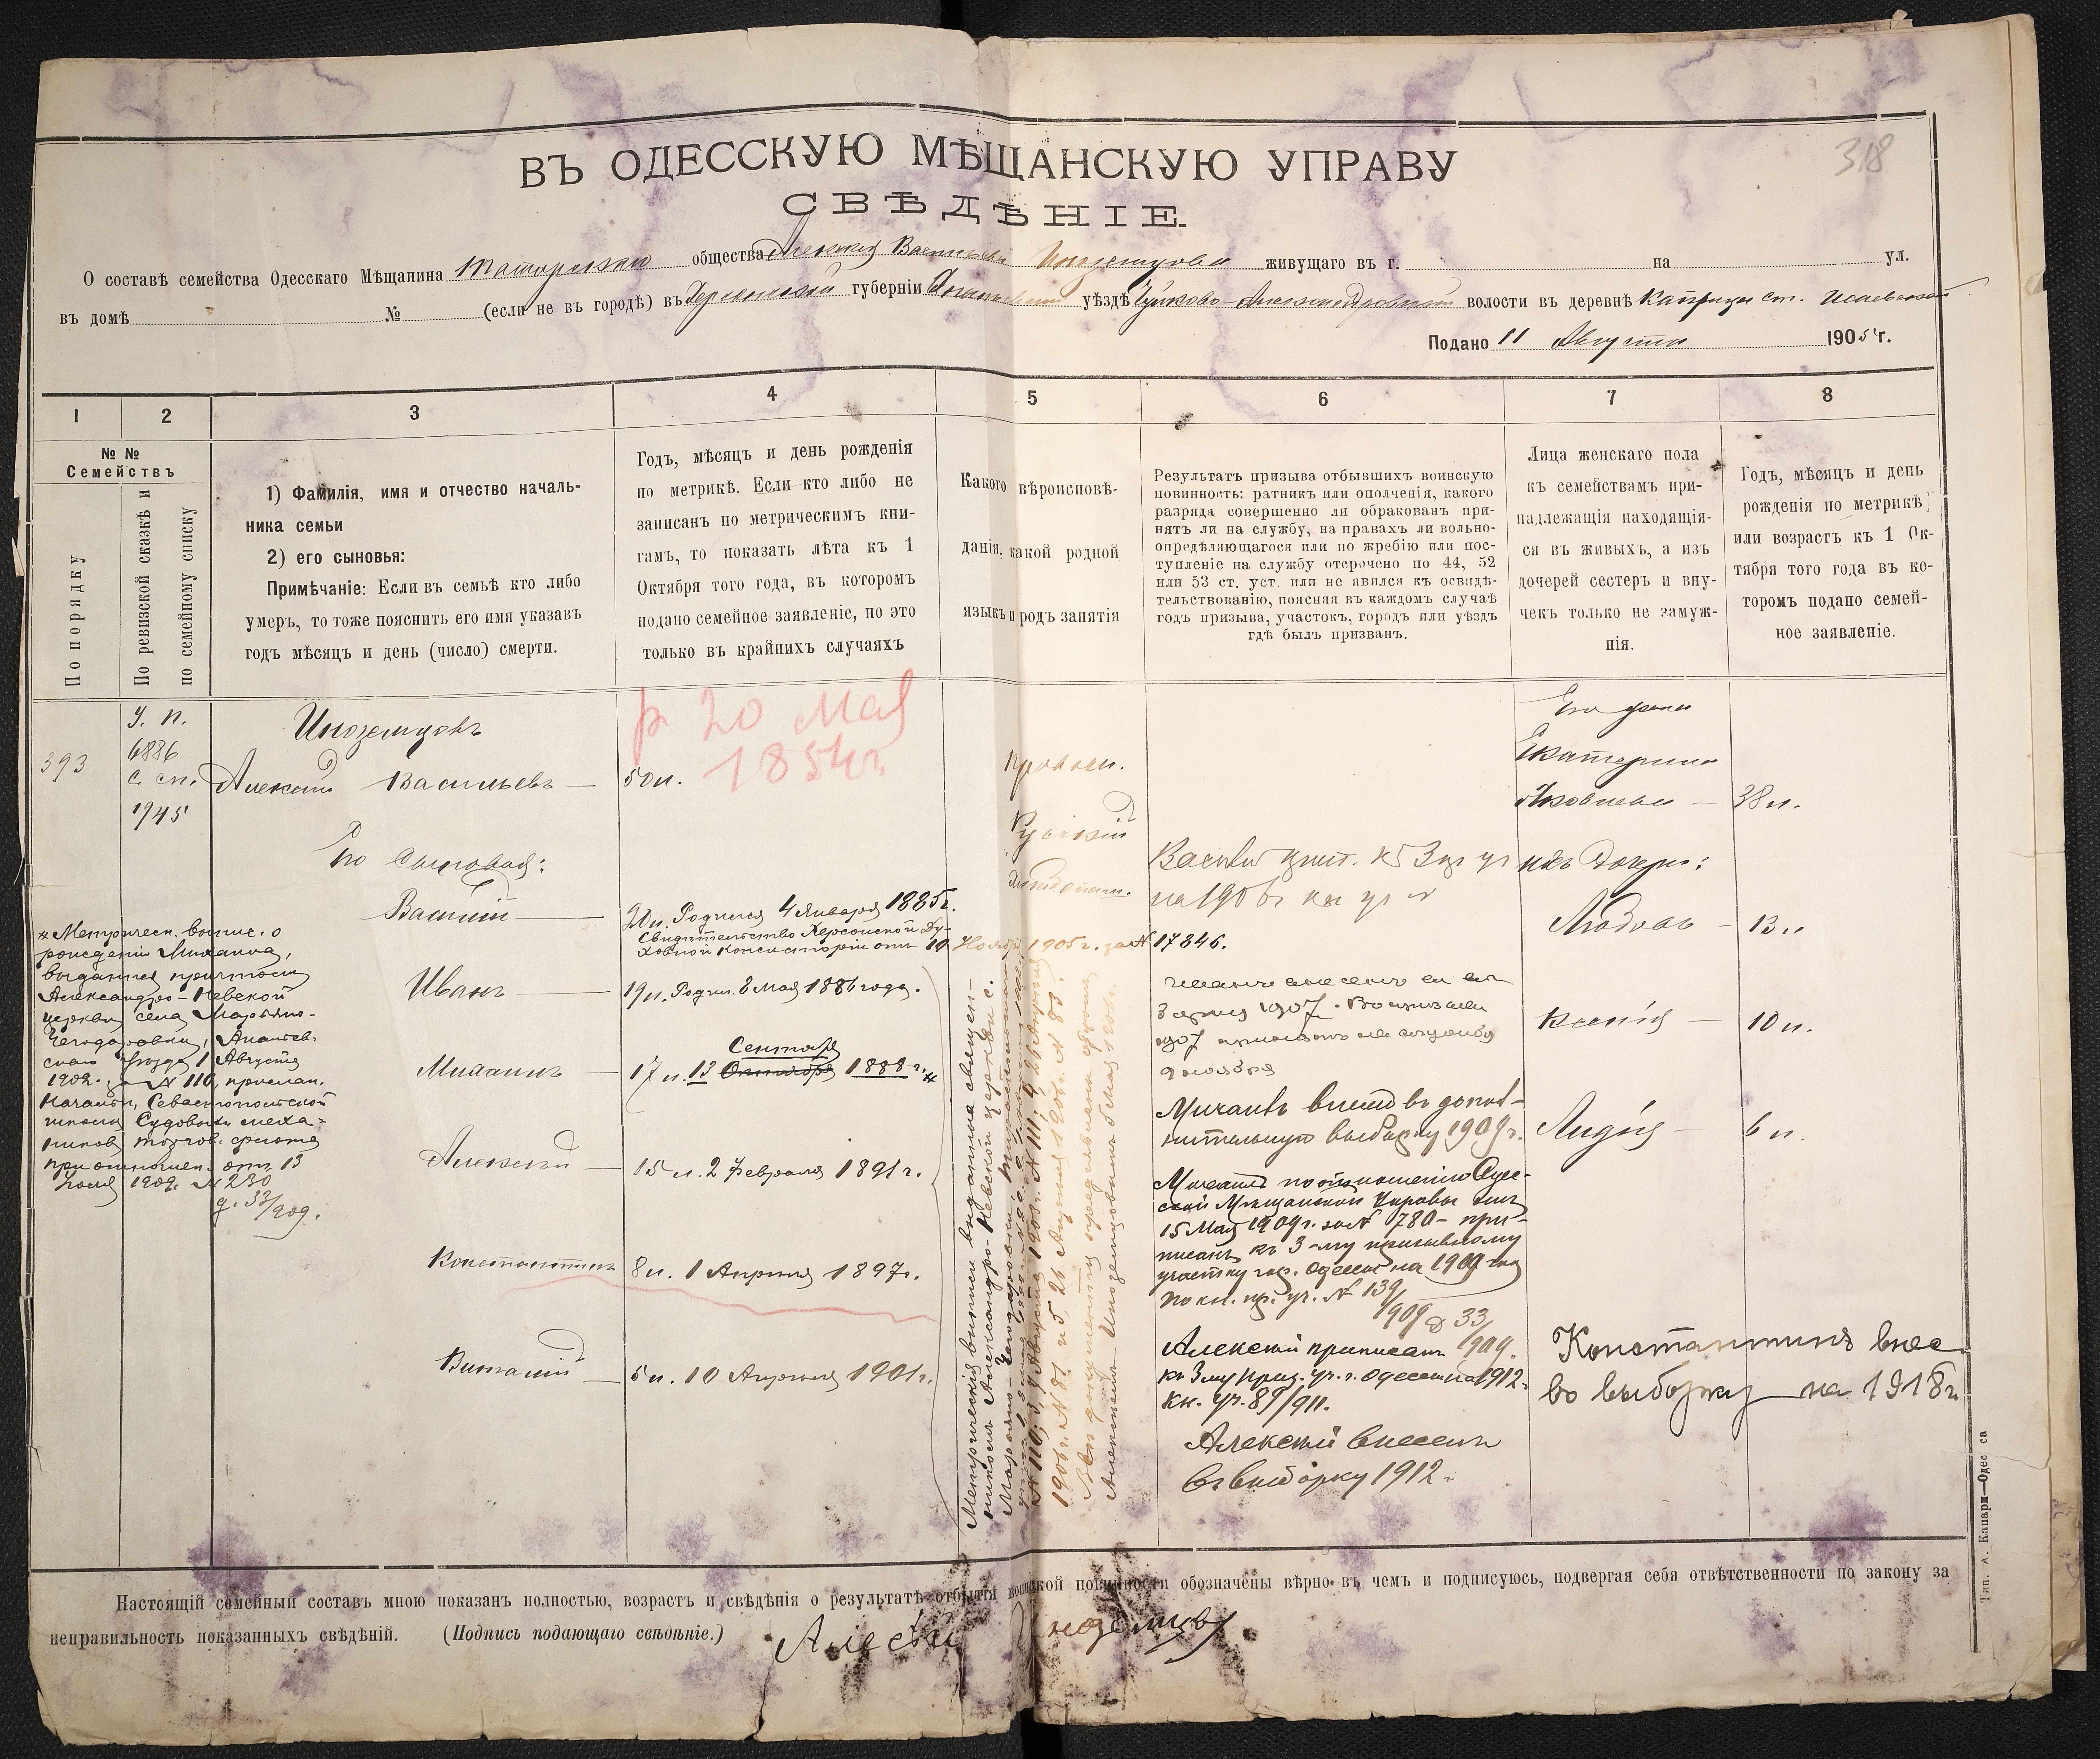 318
ВЪ ОДЕССКУЮ МѢЩАНСКУЮ УПРАВУ
СВѢДѢНІЕ.
О составѣ семейства Одесскаго Мѣщанина общества Алексѣя Васильева Иноземцова живущаго въ г. на ул.
въ домѣ № (если не въ городѣ) въ Херсонской губерніи Ананьевскаго уѣздѣ волости въ деревнѣ ст.
Подано 11 Августа 1905 г.
1 2 3 4 5 6 7 8
№ №
Семействъ
По порядку
По ревизской сказкѣ и
по семейному списку
1) Фамилія, имя и отчество началь-
ника семьи
2) его сыновья:
Примѣчаніе: Если въ семьѣ кто либо
умеръ, то тоже пояснить его имя указавъ
годъ мѣсяцъ и день (число) смерти.
Годъ, мѣсяцъ и день рожденія
по метрикѣ. Если кто либо не
записанъ по метрическимъ кни-
гамъ, то показать лѣта къ 1
Октября того года, въ которомъ
подано семейное заявленіе, но это
только въ крайнихъ случаяхъ
Какого вѣроисповѣ-
данія, какой родной
языкъ и родъ занятія
Результатъ призыва отбывшихъ воинскую
повинность: ратникъ или ополченія, какого
разряда совершенно ли обракованъ при-
нятъ ли на службу, на правахъ ли вольно-
опредѣляющагося или по жребію или пос-
тупленіе на службу отсрочено по 44, 52
или 53 ст. уст. или не явился къ освидѣ-
тельствованію, поясняя въ каждомъ случаѣ
годъ призыва, участокъ, городъ или уѣздъ
гдѣ былъ призванъ.
Лица женскаго пола
къ семействамъ при-
надлежащія находящія-
ся въ живыхъ, а изъ
дочерей сестеръ и вну-
чекъ только не замуж-
нія.
Годъ, мѣсяцъ и день
рожденія по метрикѣ
или возрастъ къ 1 Ок-
тября того года въ ко-
торомъ подано семей-
ное заявленіе.
393
6886
с. сп.
1945
Иноземцовъ
Алексѣй Васильевъ — 50 л.
р 20 Мая
1854 г.
Правосл.
Русскій
Его жена
Екатерина
Яковлева — 38 л.
Его Сыновья:
Василій — 20 л. Родился 4 Января 1885 г.
Свидѣтельство Херсонской Ду-
ховной Консисторіи отъ 19 Ноября 1905 г. за № 17846.
на 1906 г.
ихъ Дочери:
Любовь — 13 л.
Иванъ — 19 л. Родил. 8 Мая 1886 года.
3 1907. Во
1907 принятъ на службу
9 ноября
Ксенія — 10 л.
Михаилъ — 17 л. 13 Октября Сентября 1888 г. *
Михаилъ внесенъ въ допол-
нительную выборку 1909 г.
Михаилъ по отношенію Одес-
ской Мѣщанской Управы отъ
15 Мая 1909 г. за № 780 - при-
писанъ къ 3-му призывному
участку гор. Одессы на 1909 годъ
по кн. пр. уч. № 139/1909 Д 33/1909.
Лидія — 6 л.
Алексѣй — 15 л. 2 Февраля 1891 г.
Константинъ 8 л. 1 Апрѣля 1897 г.
Виталій — 5 л. 10 Апрѣля 1901 г.
Алексѣй приписанъ
къ 3 му приз. уч. г. Одессы на 1912 г.
кн. уч. 89/911.
Алексѣй внесенъ
въ выборку 1912 г.
Константинъ внес
во выборку на 1918 г.
* Метрическ. выпис. о
рожденіи Михаила,
выданная причтомъ
Александро-Невской
церкви села Марьяно-
Чегодаровки, Ананьев-
скаго уѣзда 1 Августа
1902 г. за № 110, прислан.
Начальн. Севастопольской
школы Судовыхъ меха-
никовъ торгов. флота
при отношен. отъ 13
1909 г. № 230
д. 33/909.
Метрическія выписи выданныя священ-
никомъ Александро-Невской церкви с.
Марьяно-Чегодаровки,
Настоящій семейный составъ мною показанъ полностью, возрастъ и свѣдѣнія о результатѣ отбытія воинской повинности обозначены вѣрно въ чемъ и подписуюсь, подвергая себя отвѣтственности по закону за
неправильность показанныхъ свѣдѣній. (Подпись подающаго свѣдѣніе.) Алесѣй Иноземцовъ.
Тип. А. Капари—Одесса